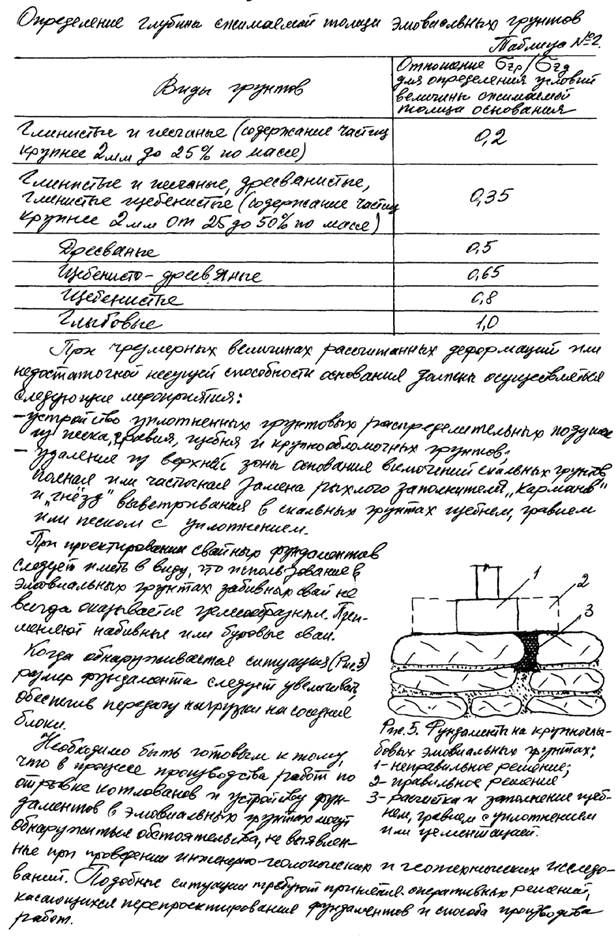 Определение глубины сжимаемой толщи элювиальных грунтов
Таблица №2.
Виды грунтов
Отношение σzp/σzg
для определения условий
величины сжимаемой
толщи основания
Глинистые и песчаные (содержание частиц
крупнее 2мм до 25% по массе)
0,2
Глинистые и песчаные, дресванистые,
глинистые щебенистые (содержание частиц
крупнее 2мм от 25 до 50% по массе)
0,35
Дресваные
0,5
Щебенисто-дресвяные
0,65
Щебенистые
0,8
Глыбовые
1,0
При чрезмерных величинах рассчитанных деформаций или
недостаточной несущей способности основания должны осуществляется
следующие мероприятия:
- устройство уплотненных грунтовых распределительных подушек
из песка, гравия, щебня и крупнообломочных грунтов;
- удаление из верхней зоны основания включений скальных грунтов,
полная или частичная замена рыхлого заполнителя „карманов"
и „гнёзд" выветривания в скальных грунтах щебнем, гравием
или песком с уплотнением.
При проектировании свайных фундаментов
следует иметь в виду, что использование в
элювиальных грунтах забивных свай не
всегда оказывается целесообразным. При-
меняют набивные или буровые сваи.
Когда обнаруживается ситуация (Рис.5)
размер фундамента следует увеличивать,
обеспечив передачу нагрузки на соседние
блоки.
1
2
3
Рис. 5. Фундаменты на крупноглы-
бовых элювиальных грунтах;
1- неправильное решение;
2- правильное решение
3- расчистка и заполнение щеб-
нем, гравием с уплотнением
или цементацией.
Необходимо быть готовым к тому,
что в процессе производства работ по
отрывке котлованов и устройству фун-
даментов в элювиальных грунтах могут
обнаружится обстоятельства, не выявлен-
ные при проведении инженерно-геологических и геотехнических исследо-
ваний. Подобные ситуации требуют принятия оперативных решений,
касающихся перепроектирования фундаментов и способа производства
работ.